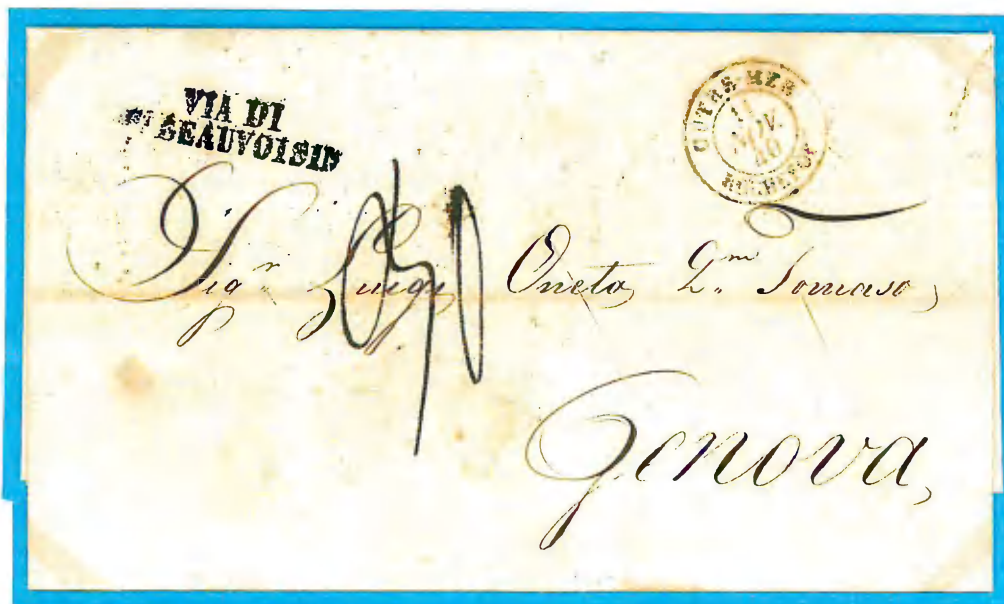 VIA DI
Pt BEAUVOISIN
OUTRE-MER
11
NOV.
40
ROCHEFORT
Sigr. Luigi Oneto Qm. Tomaso,
Genova,